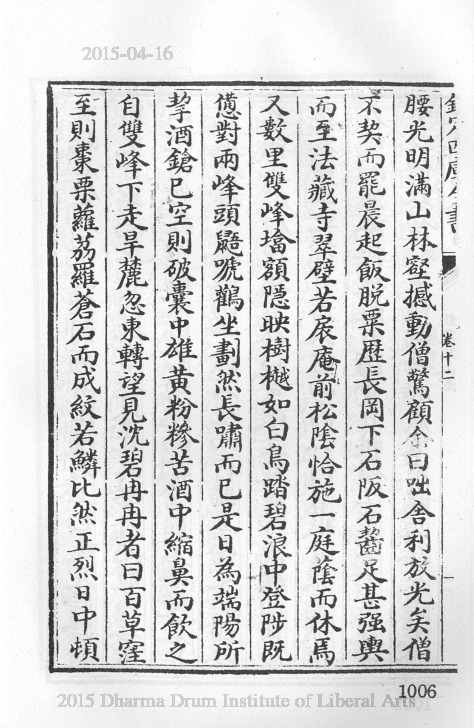 2015-04-16
欽定四庫全書
卷十二
腰光明滿山林壑撼動僧驚顧余曰咄舍利放光矣僧
不契而罷晨起飯脫粟歷長岡下石阪石齧足甚强輿
而至法藏寺翠壁若扆庵前松陰恰施一庭蔭而休焉
又數里雙峰墖額隱映樹樾如白鳥踏碧浪中登陟既
憊對兩峰頭鼯嘷鸛坐劃然長嘯而已是日為端陽所
挈酒鎗已空則破囊中雄黃粉糝苦酒中縮鼻而飲之
自雙峰下走旱麓忽東轉望見沈碧冉冉者曰百草窪
至則棗栗蘿茘羅蒼石而成紋若鱗比然正烈日中頓
1006
2015 Dharma Drum Institute of Liberal Arts